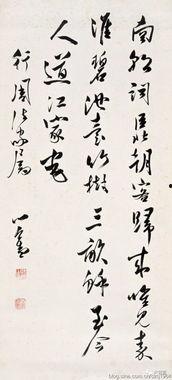 南朝詞臣北朝客歸來唯見秦
淮碧池臺竹樹三畝餘至今
人道江家宅
行周
心畬
blog.sina.com.cn